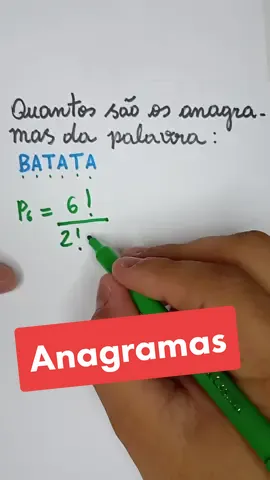 Quantos são os anagra-
mas da palavra:
BATATA
P₆ = 6!
2!
Anagramas